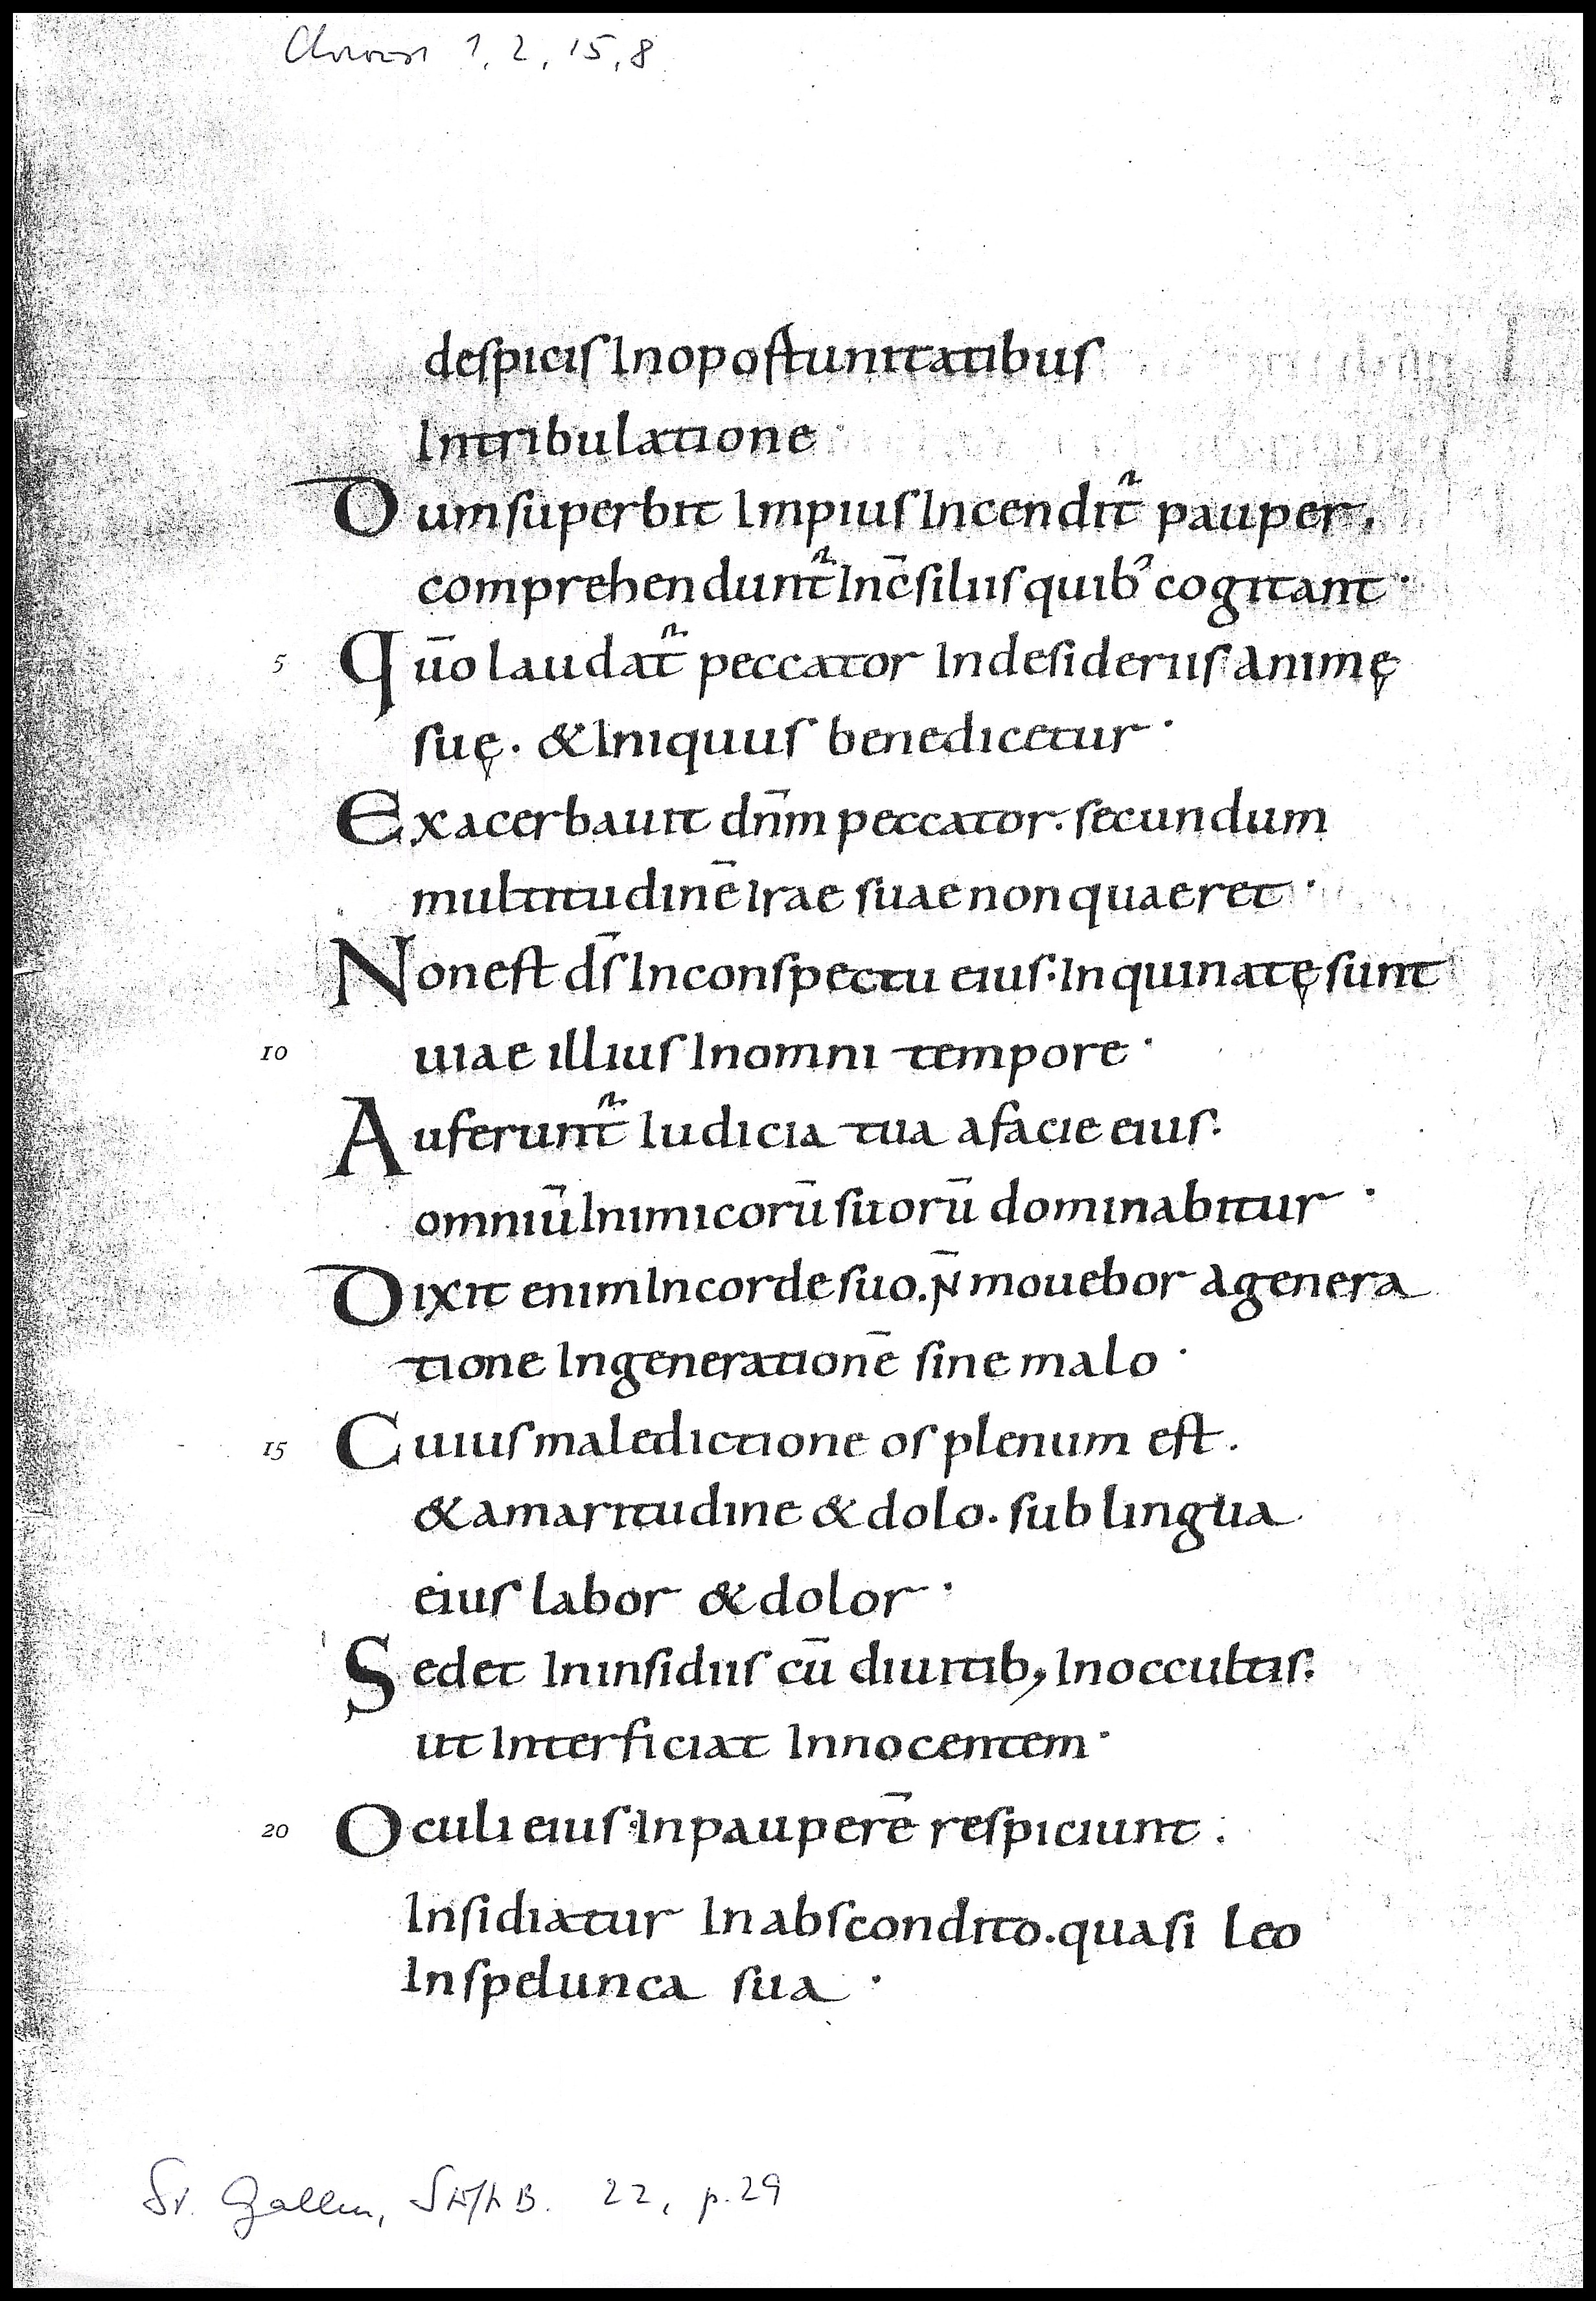 Chroust 1, 2, 15, 8
despicis Inopoſtunitatibus
Intribulatione
Dum superbit Impius Incendit̃ pauper.
comprehendunt̃ Inc̄siliis quib᾽ cogitant·
5 Qūo laudat̃ peccator Indesideriis animę
suę. & Iniquus benedicetur·
Exacerbauit dn̄m peccator. secundum
multitudinē Irae suae non quaeret·
Non est dS̄ Inconspectu eius: Inquinatę sunt
10 uiae illius Inomni tempore·
Auferunt̃ Iudicia tua afacie eius:
omniū Inimicorū suorū dominabitur·
Dixit enim Incorde suo. N̄ mouebor agenera
tione Ingenerationē sine malo·
15 Cuius maledictione os plenum est.
& amaritudine & dolo. sub lingua
eius labor & dolor·
Sedet Ininsidiis cū diuitib; Inoccultis:
ut Interficiat Innocentem·
20 Oculi eius Inpauperē respiciunt:
Insidiatur Inabscondito. quasi leo
Inspelunca sua·
St. Gallen, StiftB. 22, p. 29